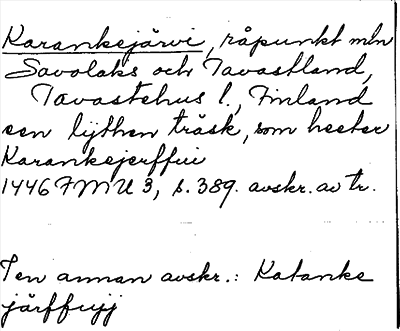 Karankejärvi, råpunkt mln
Savolaks och Tavastland,
Tavastehus l., Finland
een lijthen träsk, som heeter
Karankejerffui
1446 FMU 3, s. 389. avskr. av tr.
I en annan avskr.: Katanke
järffuyj